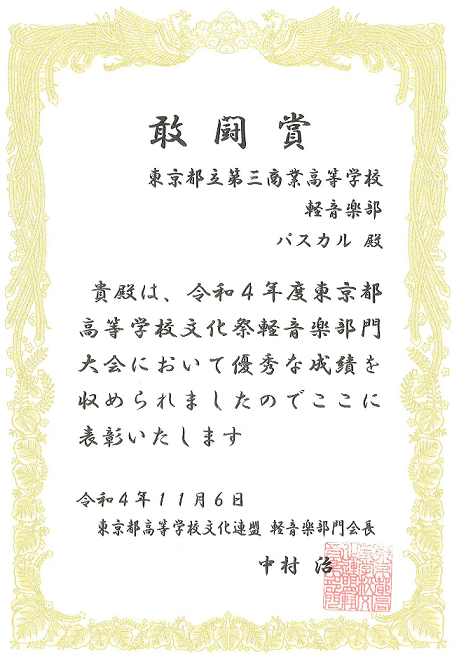 敢闘賞
東京都立第三商業高等学校
軽音楽部
パスカル 殿
貴殿は、令和4年度東京都
高等学校文化祭軽音楽部門
大会において優秀な成績を
収められましたのでここに
表彰いたします
令和4年11月6日
東京都高等学校文化連盟 軽音楽部門会長
中村 治